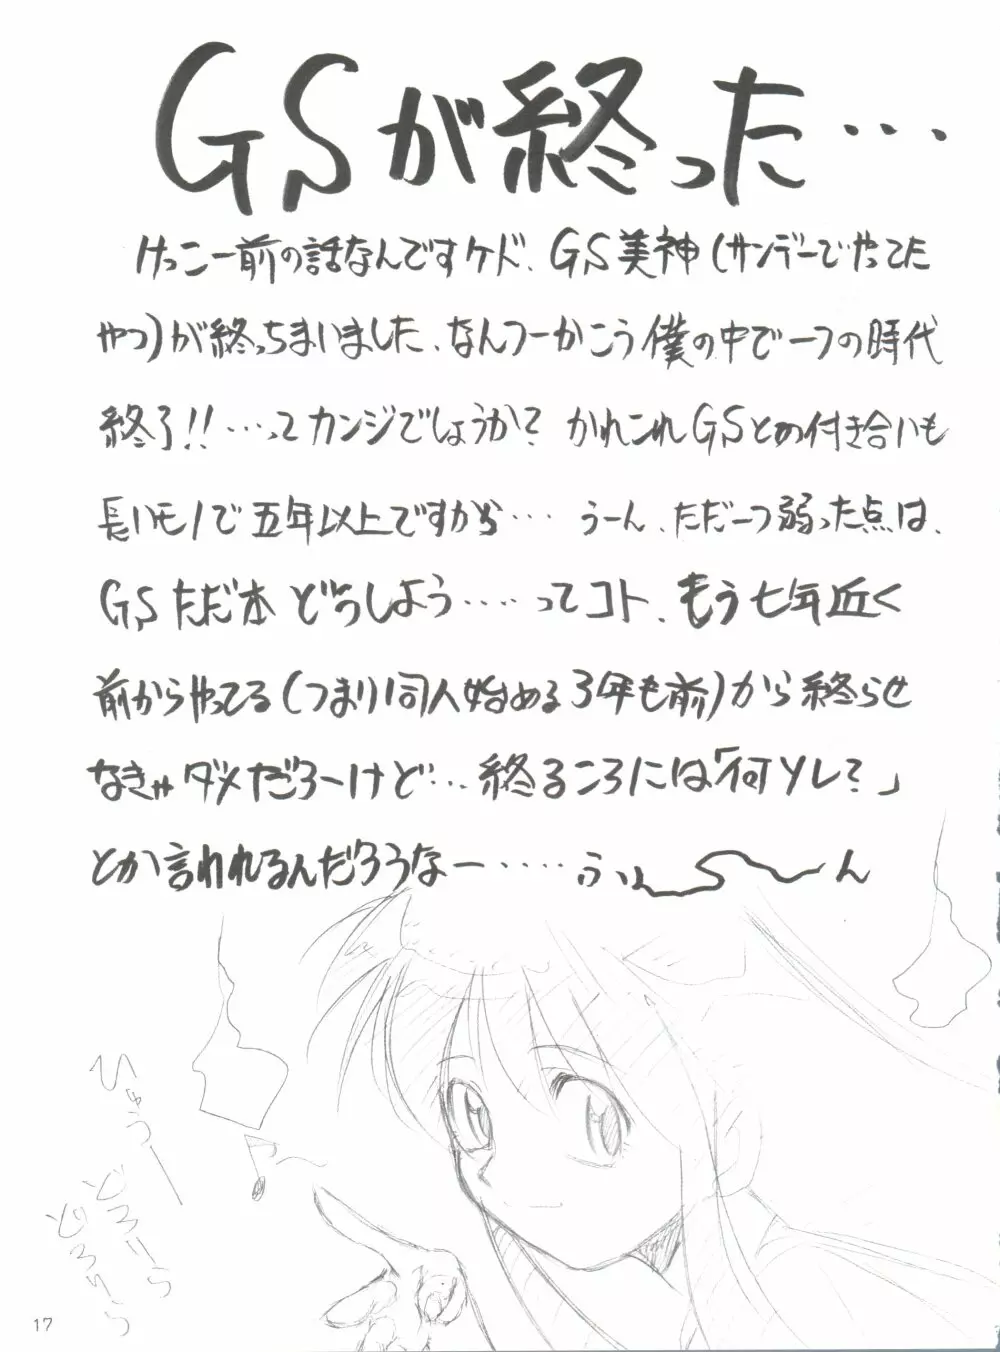 GSが終った…
けっこー前の話なんですケド、GS美神(サンデーでやってた
やつ)が終っちまいました、なんつーかこう僕の中で一つの時代
終了!!…ってカンジでしょうか? かれこれGSとの付き合いも
長いモノで五年以上ですから… うーん、ただ一つ弱った点は、
GSただ本 どうしよう‥‥ってコト、もう七年近く
前からやってる(つまり同人始める3年も前)から終らせ
なきゃダメだろーけど…終るころには「何ソレ?」
とか言われるんだろうなー‥‥ ふぃ〜〜ん
ひゅうー
どろりら
どろりら
17